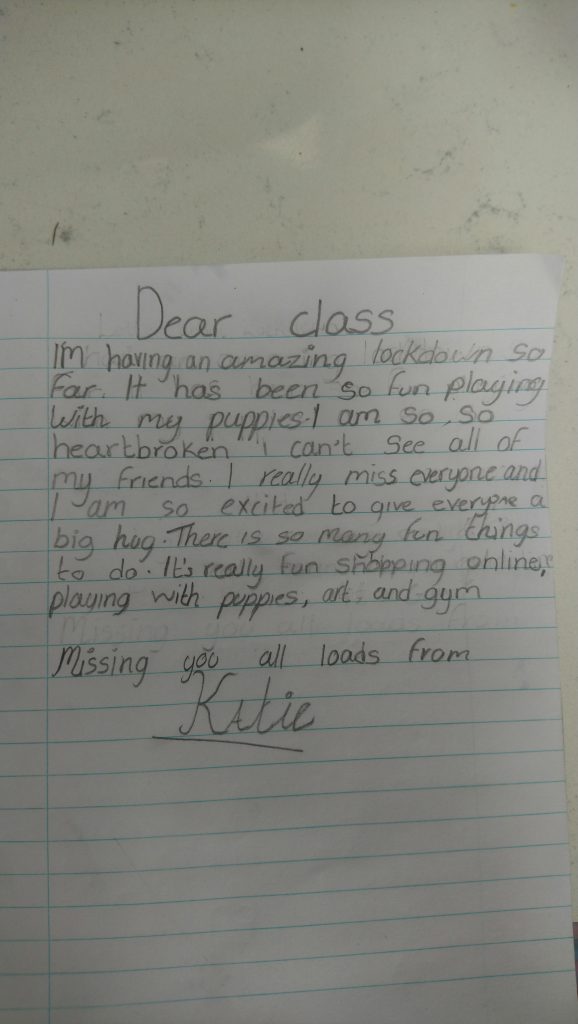 Dear class
I'm having an amazing lockdown so
far. It has been so fun playing
with my puppies. I am so, so
heartbroken i can't see all of
my friends. I really miss everyone and
I am so excited to give everyone a
big hug. There is so many fun things
to do. It's really fun shopping online,
playing with puppies, art, and gym
Missing you all loads from
Katie